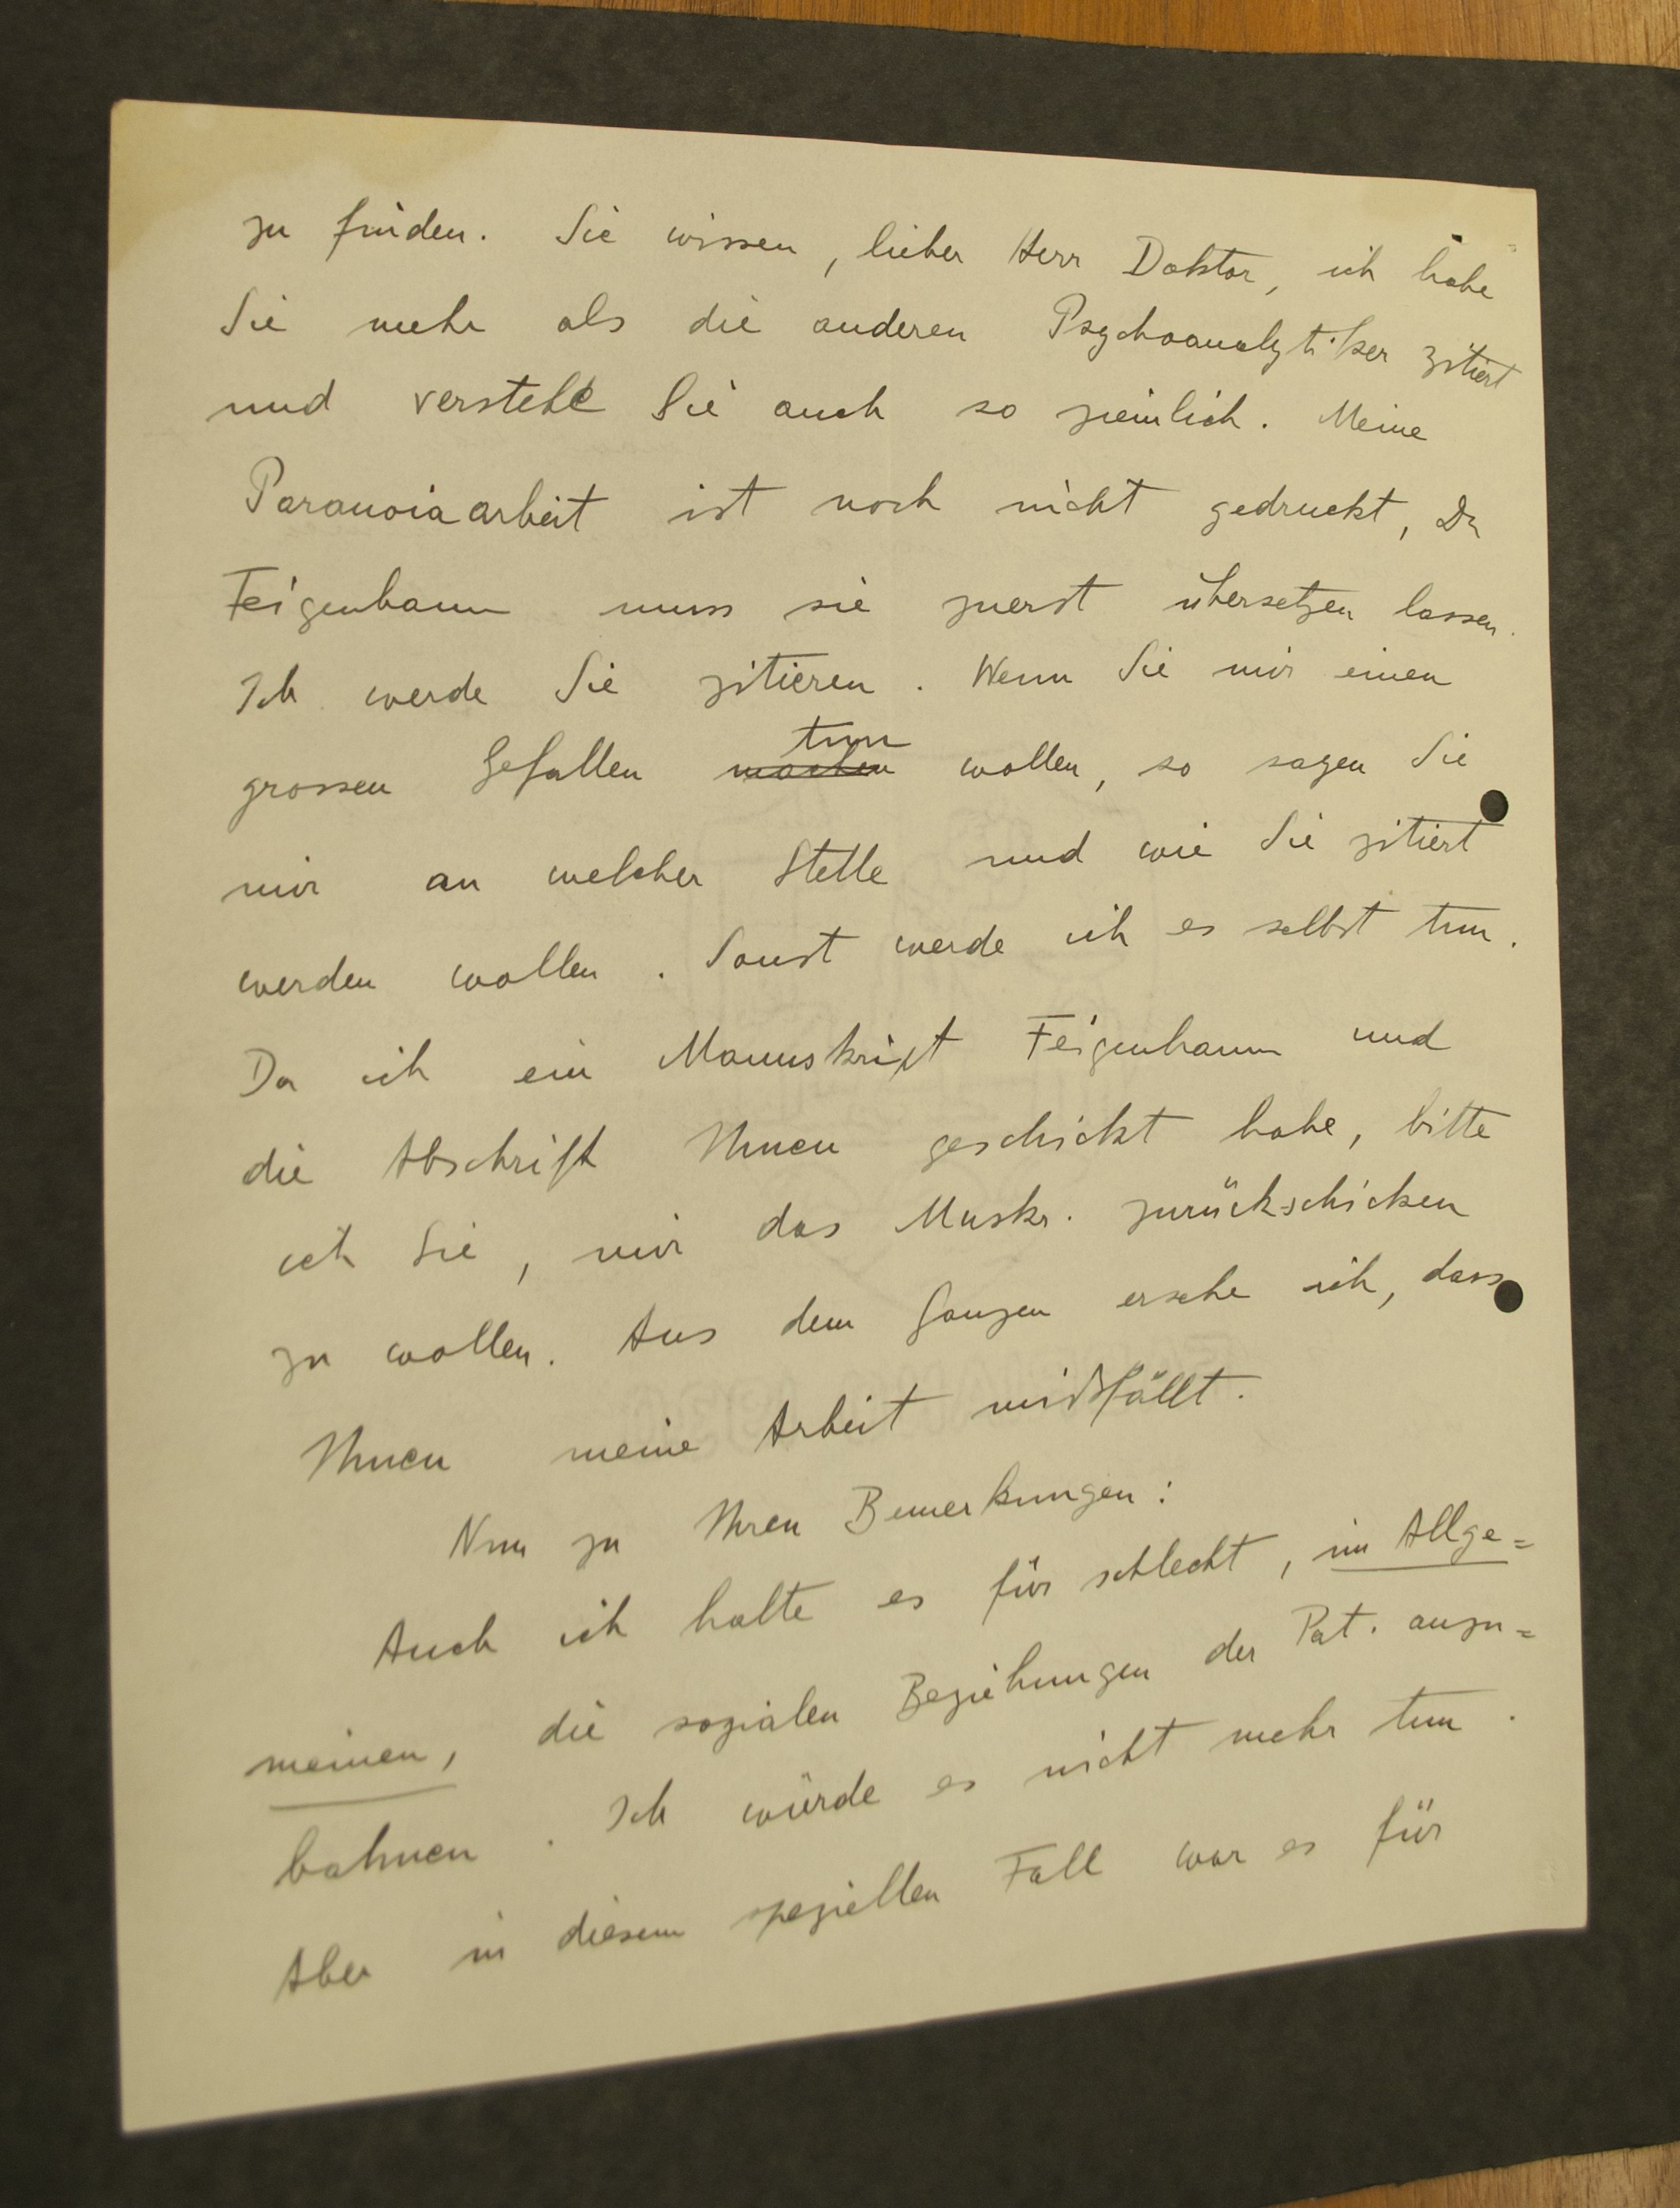 zu finden. Sie wissen, lieber Herr Doktor, ich habe
Sie mehr als die anderen Psychoanalytiker zitiert
und verstehe Sie auch so ziemlich. Meine
Paranoiaarbeit ist noch nicht gedruckt, Dr
Feigenbaum muss sie zuerst übersetzen lassen.
Ich werde Sie zitieren. Wenn Sie mir einen
tun
grossen Gefallen machen wollen, so sagen Sie
mir an welcher Stelle und wie Sie zitiert
werden wollen. Sonst werde ich es selbst tun.
Da ich ein Manuskript Feigenbaum und
die Abschrift Ihnen geschickt habe, bitte
ich Sie, mir das Muskr. zurückschicken
zu wollen. Aus dem Ganzen ersehe ich, dass
Ihnen meine Arbeit mißfällt.
Nun zu Ihren Bemerkungen:
Auch ich halte es für schlecht, im Allge=
meinen, die sozialen Beziehungen der Pat. anzu=
bahnen. Ich würde es nicht mehr tun.
Aber in diesem speziellen Fall war es für